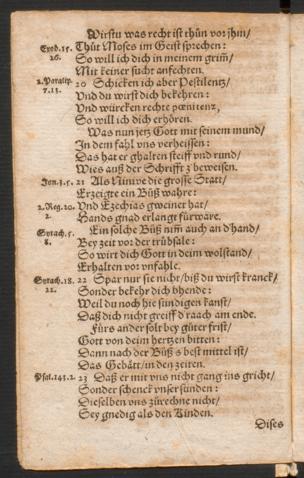 Wirstu was recht ist thůn vor jhm/
Exod. 15. 26.
Thůt Moses im Geist sprechen:
So will ich dich in meinem grim̃/
Mit keiner sucht anfechten.
2. Paralip. 7. 13.
20 Schicken ich aber Pestilentz/
Vnd du wirst dich bekehren:
Vnd würcken rechte pœnitenz,
So will ich dich erhören.
Was nun jetz Gott mit seinem mund/
In dem fahl vns verheissen:
Das hat er ghalten steiff vnd rund/
Wies auß der Schrifft zbeweisen.
Jon. 3. 5.
21 Als Niniue die grosse Statt/
Erzeigte ein Bůß wahre:
2. Reg. 20. 2.
Vnd Ezechias gweinet hat/
Hands gnad erlangt fürware.
Syrach. 5. 8.
Ein solche Bůß nim̃ auch an dhand/
Bey zeit vor der trübsale:
So wirt dich Gott in deim wolstand/
Erhalten vor vnfahle.
Syrach. 18. 22.
22 Spar nur sie nicht/biß du wirst kranck/
Sonder bekehr dich bhende:
Weil du noch hie sündigen kanst/
Daß dich nicht greiff d'raach am ende.
Fürs ander solt bey gůter frist/
Gott von deim hertzen bitten:
Dann nach der Bůß s'best mittel ist/
Das Gebått/in den zeiten.
Psal. 143. 2.
23 Daß er mit vns nicht gang ins gricht/
Sonder schenck vnser sünden:
Dieselben vns zůrechne nicht/
Sey gnedig als den Kinden.
Dises